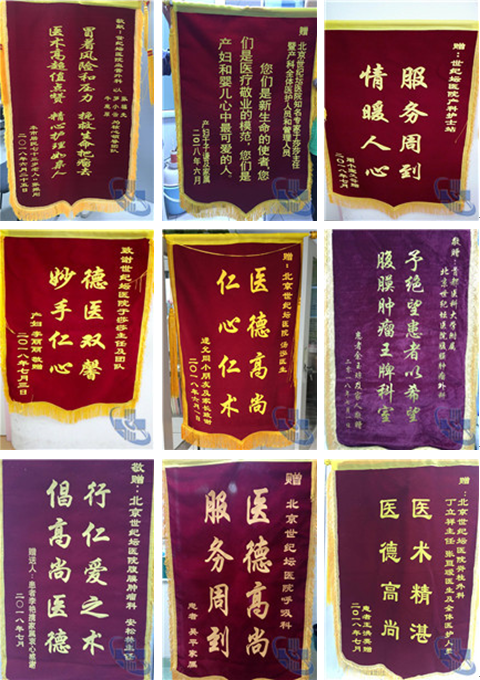 敬献:世纪坛医院血管外科
冒着风险和压力 挽救生命把病去
医术高超值点赞 精心护理如亲人
赠 北京世纪坛医院知名专家于莎莎主任
暨产科全体医护人员和管理人员
您们是新生命的使者,您
们是医疗敬业的模范,您们是
产妇和婴儿心中最可爱的人。
二〇一八年六月
赠:世纪坛医院产科护士站
服务周到
情暖人心
二〇一八年七月
致谢世纪坛医院于莎莎主任及团队
德医双馨
妙手仁心
产妇 李丽丽敬赠
二〇一八年七月三日
赠:北京世纪坛医院
医德高尚
仁心仁术
二〇一八年六月
敬赠:首都医科大学附属
北京世纪坛医院腹膜肿瘤外科
予绝望患者以希望
腹膜肿瘤王牌科室
二零一八年七月
敬赠:北京世纪坛医院腹膜肿瘤科 安松林主任
行仁爱之术
倡高尚医德
赠送人:患者李艳携家属衷心感谢
二〇一八年七月
赠:北京世纪坛医院呼吸科
医德高尚
服务周到
患者 吴平家属
赠:北京世纪坛医院脊柱外科
丁立祥主任 医生及全体医护人员
医术精湛
医德高尚
二〇一八年七月